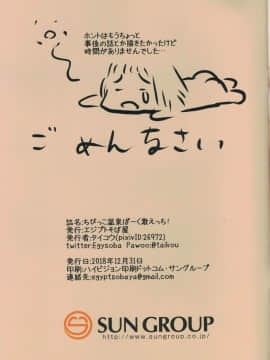 ホントはもうちょっと
事後の話とか描きたかったけど
時間がありませんでした…
ごめんなさい
誌名:ちびっこ温泉ぱーく激えっち!
発行:エジプトそば屋
発行者:タイコウ(pixivID:26972)
twitter:Egysoba Pawoo:@taikou
発行日:2018年12月31日
印刷:ハイビジョン印刷ドットコム・サングループ
連絡先:egyptsobaya@gmail.com
SUN GROUP
http://www.sungroup.co.jp/